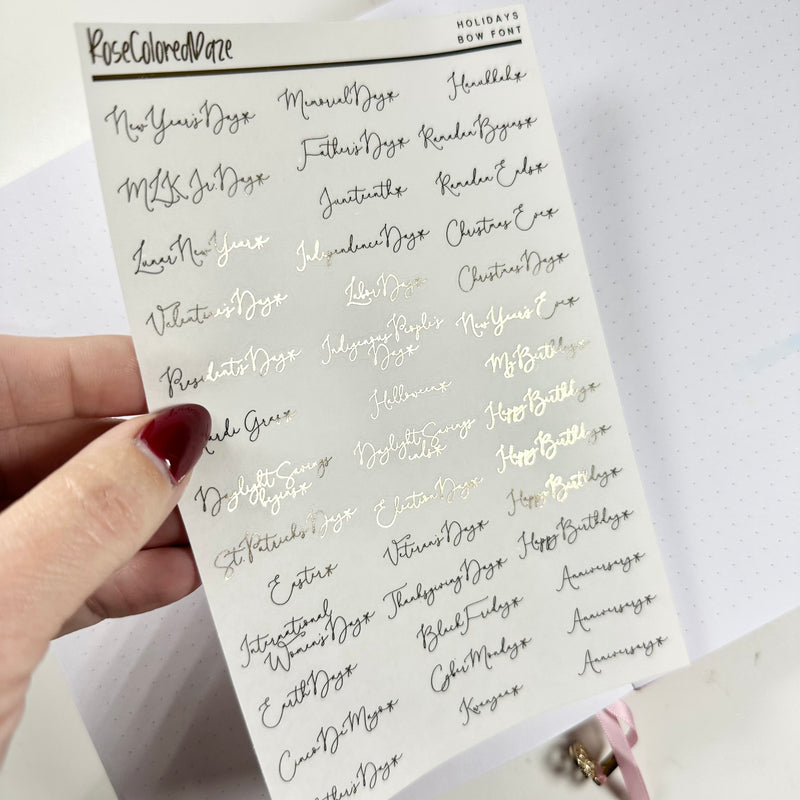 RoseColoredDaze
HOLIDAYS
BOW FONT
New Year's Day*
MLK Jr. Day*
Lunar New Year*
Valentine's Day*
President's Day*
Mardi Gras*
Daylight Savings
begins*
St. Patrick's Day*
Easter*
International
Women's Day*
Earth Day*
Cinco De Mayo*
Mother's Day*
Memorial Day*
Father's Day*
Juneteenth*
Independence Day*
Labor Day*
Indigenous People's
Day*
Halloween*
Daylight Savings
ends*
Election Day*
Veteran's Day*
Thanksgiving Day*
Black Friday*
Cyber Monday*
Kwanzaa*
Hanukkah*
Ramadan Begins*
Ramadan Ends*
Christmas Eve*
Christmas Day*
New Year's Eve*
My Birthday*
Happy Birthday*
Happy Birthday*
Happy Birthday*
Happy Birthday*
Anniversary*
Anniversary*
Anniversary*